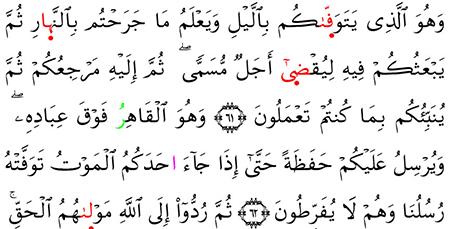 وَهُوَ ٱلَّذِى يَتَوَفَّىٰكُم بِٱلَّيْلِ وَيَعْلَمُ مَا جَرَحْتُم بِٱلنَّهارِ ثُمَّ
يَبْعَثُكُمْ فِيهِ لِيُقْضَىٰٓ أَجَلٌ مُّسَمًّى ۖ ثُمَّ إِلَيْهِ مَرْجِعُكُمْ ثُمَّ
يُنَبِّئُكُم بِمَا كُنتُمْ تَعْمَلُونَ ﴿٦١﴾ وَهُوَ ٱلْقَاهِرُ فَوْقَ عِبَادِهِۦ ۖ
وَيُرْسِلُ عَلَيْكُمْ حَفَظَةً حَتَّىٰٓ إِذَا جَآءَ احَدَكُمُ ٱلْمَوْتُ تَوَفَّتْهُ
رُسُلُنَا وَهُمْ لَا يُفَرِّطُونَ ﴿٦٢﴾ ثُمَّ رُدُّوٓا۟ إِلَى ٱللَّهِ مَوْلَىٰهُمُ ٱلْحَقِّ ۚ